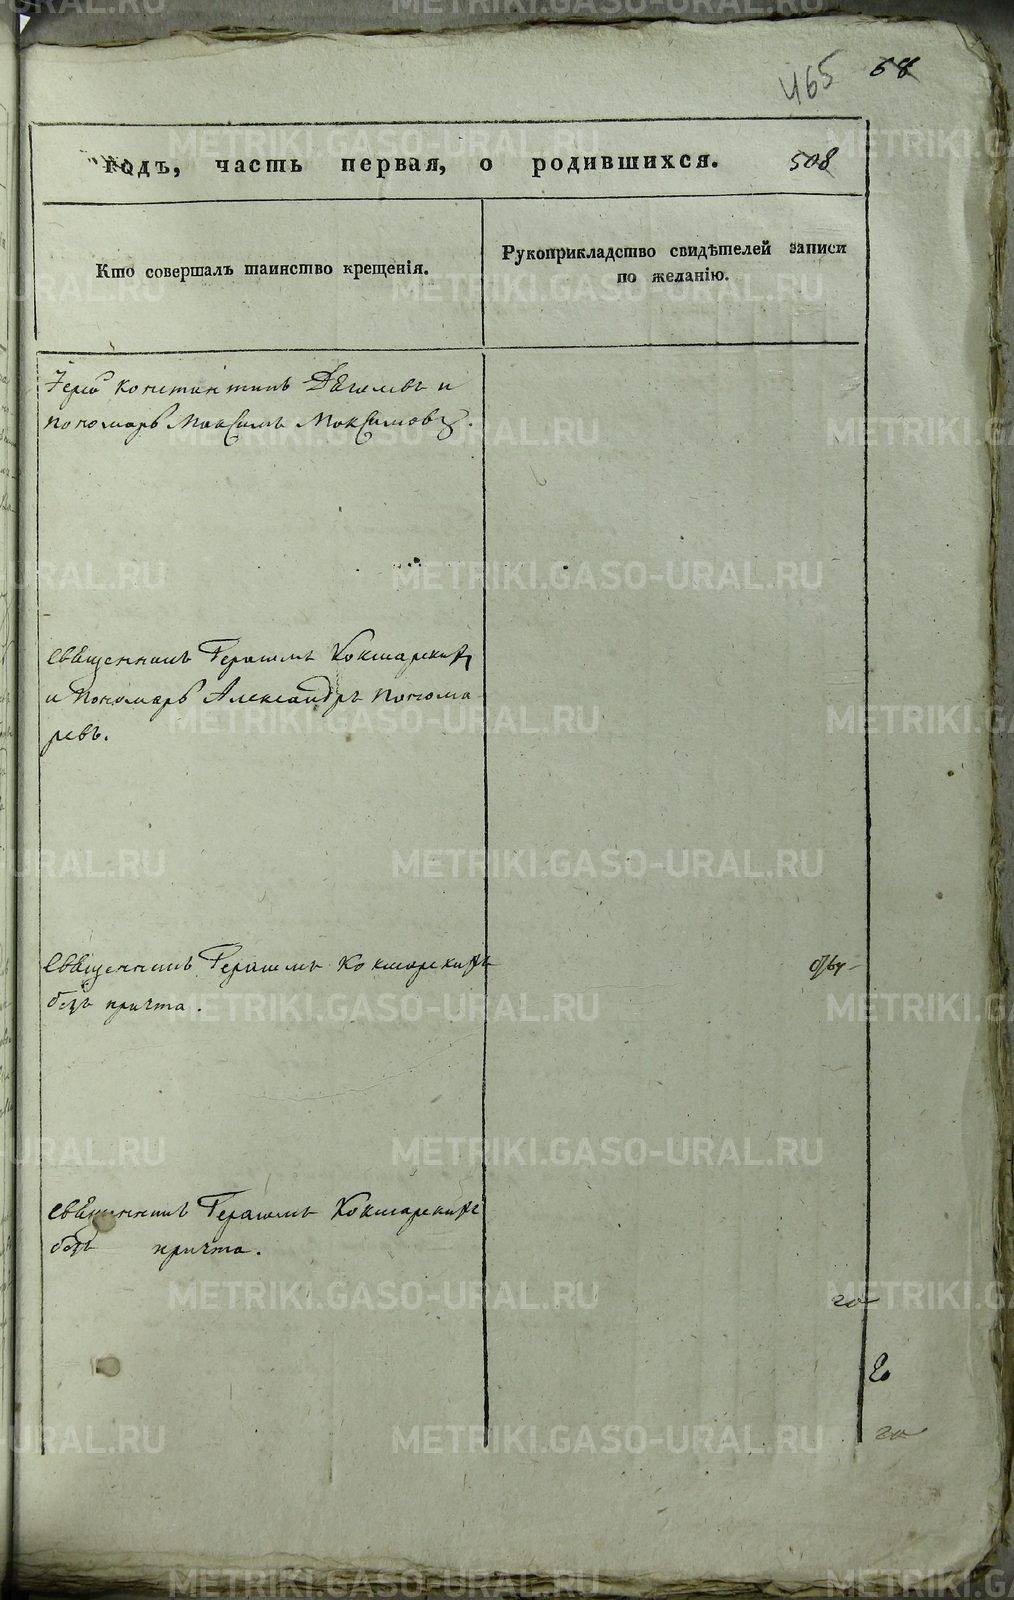 465 68
годъ, часть первая, о родившихся. 508
Кто совершалъ таинство крещенія.
Рукоприкладство свидѣтелей записи
по желанію.
Константинъ и
пономарь Максимъ Максимовъ.
священникъ Герасимъ Кокшарскій
и пономарь Александръ Понома
ревъ.
священникъ Герасимъ Кокшарскій
безъ причта.
священникъ Герасимъ Кокшарскій
безъ причта.
METRIKI.GASO-URAL.RU